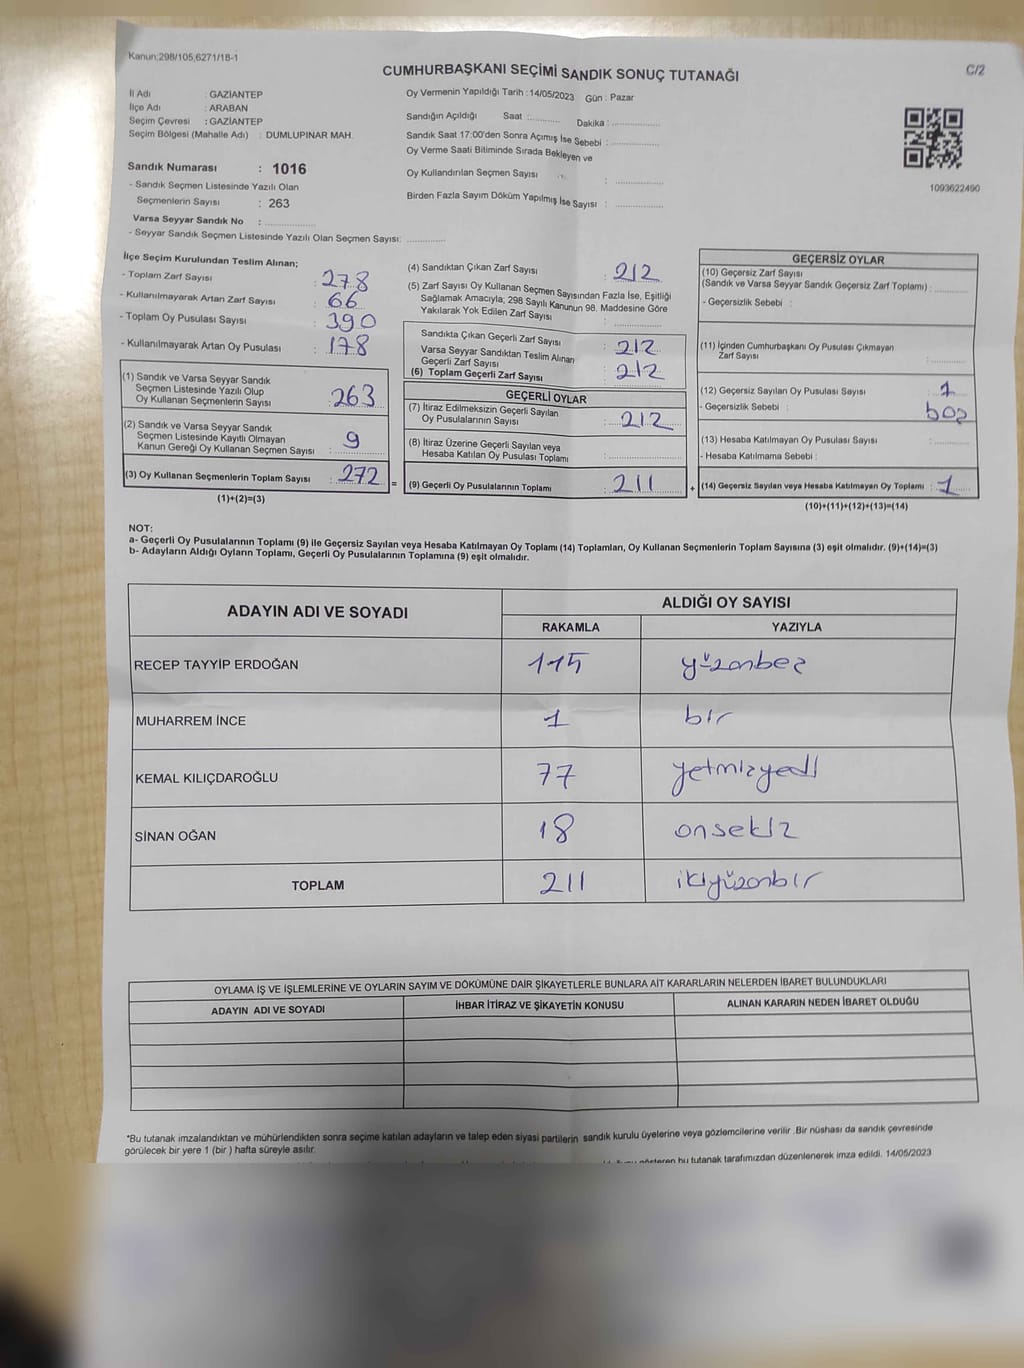 Kanun:298/105,6271/18-1
CUMHURBAŞKANI SEÇİMİ SANDIK SONUÇ TUTANAĞI
C/2
İl Adı : GAZİANTEP
İlçe Adı : ARABAN
Seçim Çevresi : GAZİANTEP
Seçim Bölgesi (Mahalle Adı) : DUMLUPINAR MAH.
Sandık Numarası : 1016
- Sandık Seçmen Listesinde Yazılı Olan
Seçmenlerin Sayısı : 263
Varsa Seyyar Sandık No : ..............
- Seyyar Sandık Seçmen Listesinde Yazılı Olan Seçmen Sayısı: ..............
Oy Vermenin Yapıldığı Tarih : 14/05/2023 Gün : Pazar
Sandığın Açıldığı Saat :........... Dakika : ..............
Sandık Saat 17:00'den Sonra Açımış İse Sebebi : ..............
Oy Verme Saati Bitiminde Sırada Bekleyen ve
Oy Kullandırılan Seçmen Sayısı : ..............
Birden Fazla Sayım Döküm Yapılmış İse Sayısı : ..............
1093622490
İlçe Seçim Kurulundan Teslim Alınan;
- Toplam Zarf Sayısı : 278
- Kullanılmayarak Artan Zarf Sayısı : 66
- Toplam Oy Pusulası Sayısı : 390
- Kullanılmayarak Artan Oy Pusulası : 178
(1) Sandık ve Varsa Seyyar Sandık
Seçmen Listesinde Yazılı Olup
Oy Kullanan Seçmenlerin Sayısı : 263
(2) Sandık ve Varsa Seyyar Sandık
Seçmen Listesinde Kayıtlı Olmayan
Kanun Gereği Oy Kullanan Seçmen Sayısı : 9
(3) Oy Kullanan Seçmenlerin Toplam Sayısı : 272
(1)+(2)=(3)
=
(4) Sandıktan Çıkan Zarf Sayısı : 212
(5) Zarf Sayısı Oy Kullanan Seçmen Sayısından Fazla İse, Eşitliği
Sağlamak Amacıyla, 298 Sayılı Kanunun 98. Maddesine Göre
Yakılarak Yok Edilen Zarf Sayısı : ..............
Sandıkta Çıkan Geçerli Zarf Sayısı : 212
Varsa Seyyar Sandıktan Teslim Alınan
Geçerli Zarf Sayısı
(6) Toplam Geçerli Zarf Sayısı : 212
GEÇERLİ OYLAR
(7) İtiraz Edilmeksizin Geçerli Sayılan
Oy Pusulalarının Sayısı : 212
(8) İtiraz Üzerine Geçerli Sayılan veya
Hesaba Katılan Oy Pusulası Toplamı : ..............
(9) Geçerli Oy Pusulalarının Toplamı : 211
+
GEÇERSİZ OYLAR
(10) Geçersiz Zarf Sayısı
(Sandık ve Varsa Seyyar Sandık Geçersiz Zarf Toplamı) : ..............
- Geçersizlik Sebebi :
(11) İçinden Cumhurbaşkanı Oy Pusulası Çıkmayan
Zarf Sayısı : ..............
(12) Geçersiz Sayılan Oy Pusulası Sayısı : 1
- Geçersizlik Sebebi : boş
(13) Hesaba Katılmayan Oy Pusulası Sayısı : ..............
- Hesaba Katılmama Sebebi :
(14) Geçersiz Sayılan veya Hesaba Katılmayan Oy Toplamı : 1
(10)+(11)+(12)+(13)=(14)
NOT:
a- Geçerli Oy Pusulalarının Toplamı (9) ile Geçersiz Sayılan veya Hesaba Katılmayan Oy Toplamı (14) Toplamları, Oy Kullanan Seçmenlerin Toplam Sayısına (3) eşit olmalıdır. (9)+(14)=(3)
b- Adayların Aldığı Oyların Toplamı, Geçerli Oy Pusulalarının Toplamına (9) eşit olmalıdır.
ADAYIN ADI VE SOYADI
ALDIĞI OY SAYISI
RAKAMLA YAZIYLA
RECEP TAYYİP ERDOĞAN 115 yüzonbeş
MUHARREM İNCE 1 bir
KEMAL KILIÇDAROĞLU 77 yetmişyedi
SİNAN OĞAN 18 onsekiz
TOPLAM 211 ikiyüzonbir
OYLAMA İŞ VE İŞLEMLERİNE VE OYLARIN SAYIM VE DÖKÜMÜNE DAİR ŞİKAYETLERLE BUNLARA AİT KARARLARIN NELERDEN İBARET BULUNDUKLARI
ADAYIN ADI VE SOYADI İHBAR İTİRAZ VE ŞİKAYETİN KONUSU ALINAN KARARIN NEDEN İBARET OLDUĞU
*Bu tutanak imzalandıktan ve mühürlendikten sonra seçime katılan adayların ve talep eden siyasi partilerin sandık kurulu üyelerine veya gözlemcilerine verilir .Bir nüshası da sandık çevresinde
görülecek bir yere 1 (bir ) hafta süreyle asılır.
gösteren bu tutanak tarafımızdan düzenlenerek imza edildi. 14/05/2023